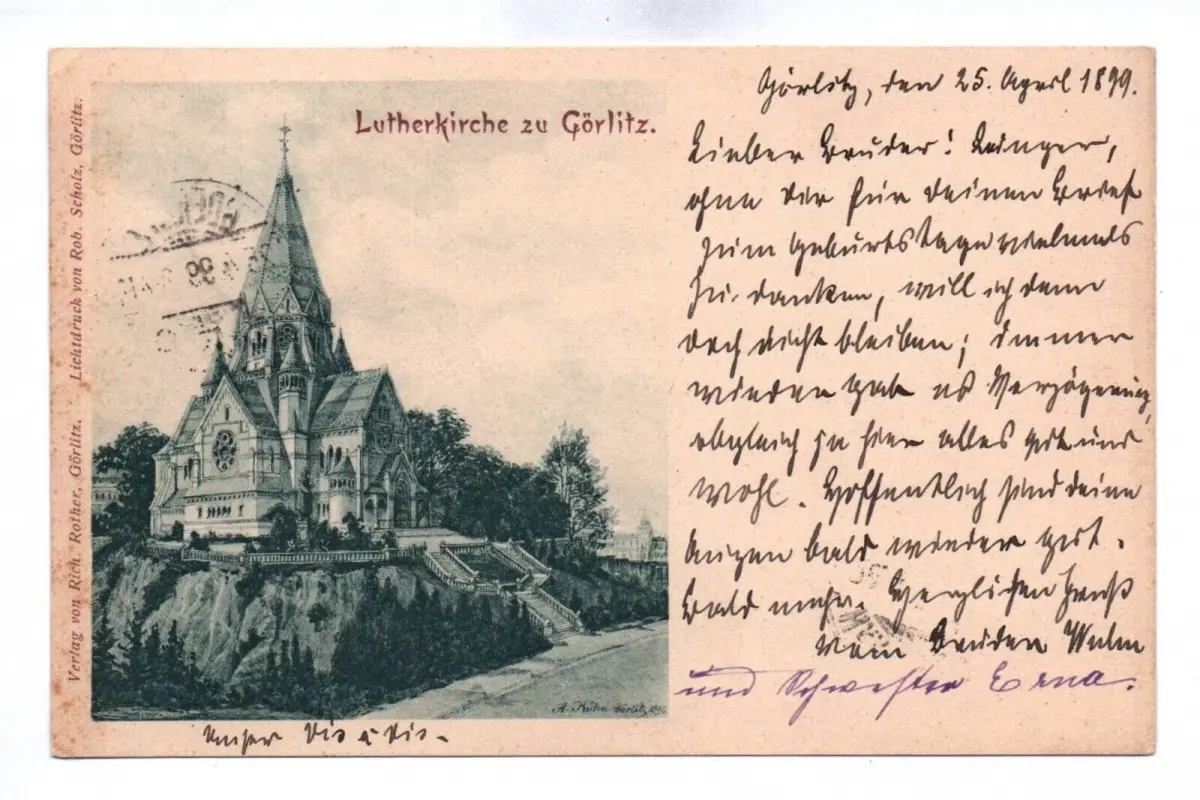 Lutherkirche zu Görlitz.
Verlag von Rich. Rother, Görlitz. Lichtdruck von Rob. Scholz, Görlitz.
Görlitz, den 25. April 1899.
Lieber Bruder!
ohne Dir für Deinen Brief
zum Geburtstage vielmals
zu danken, will ich denn
doch nicht bleiben; immer
wieder gab es Verzögerung,
obgleich ja hier alles gut und
wohl. Hoffentlich sind Deine
Augen bald wieder gut.
Bald mehr. Herzlichen Gruß
vom Bruder
und Schwester Erna.
Unser Vis à Vis.
A. Kühn Görlitz